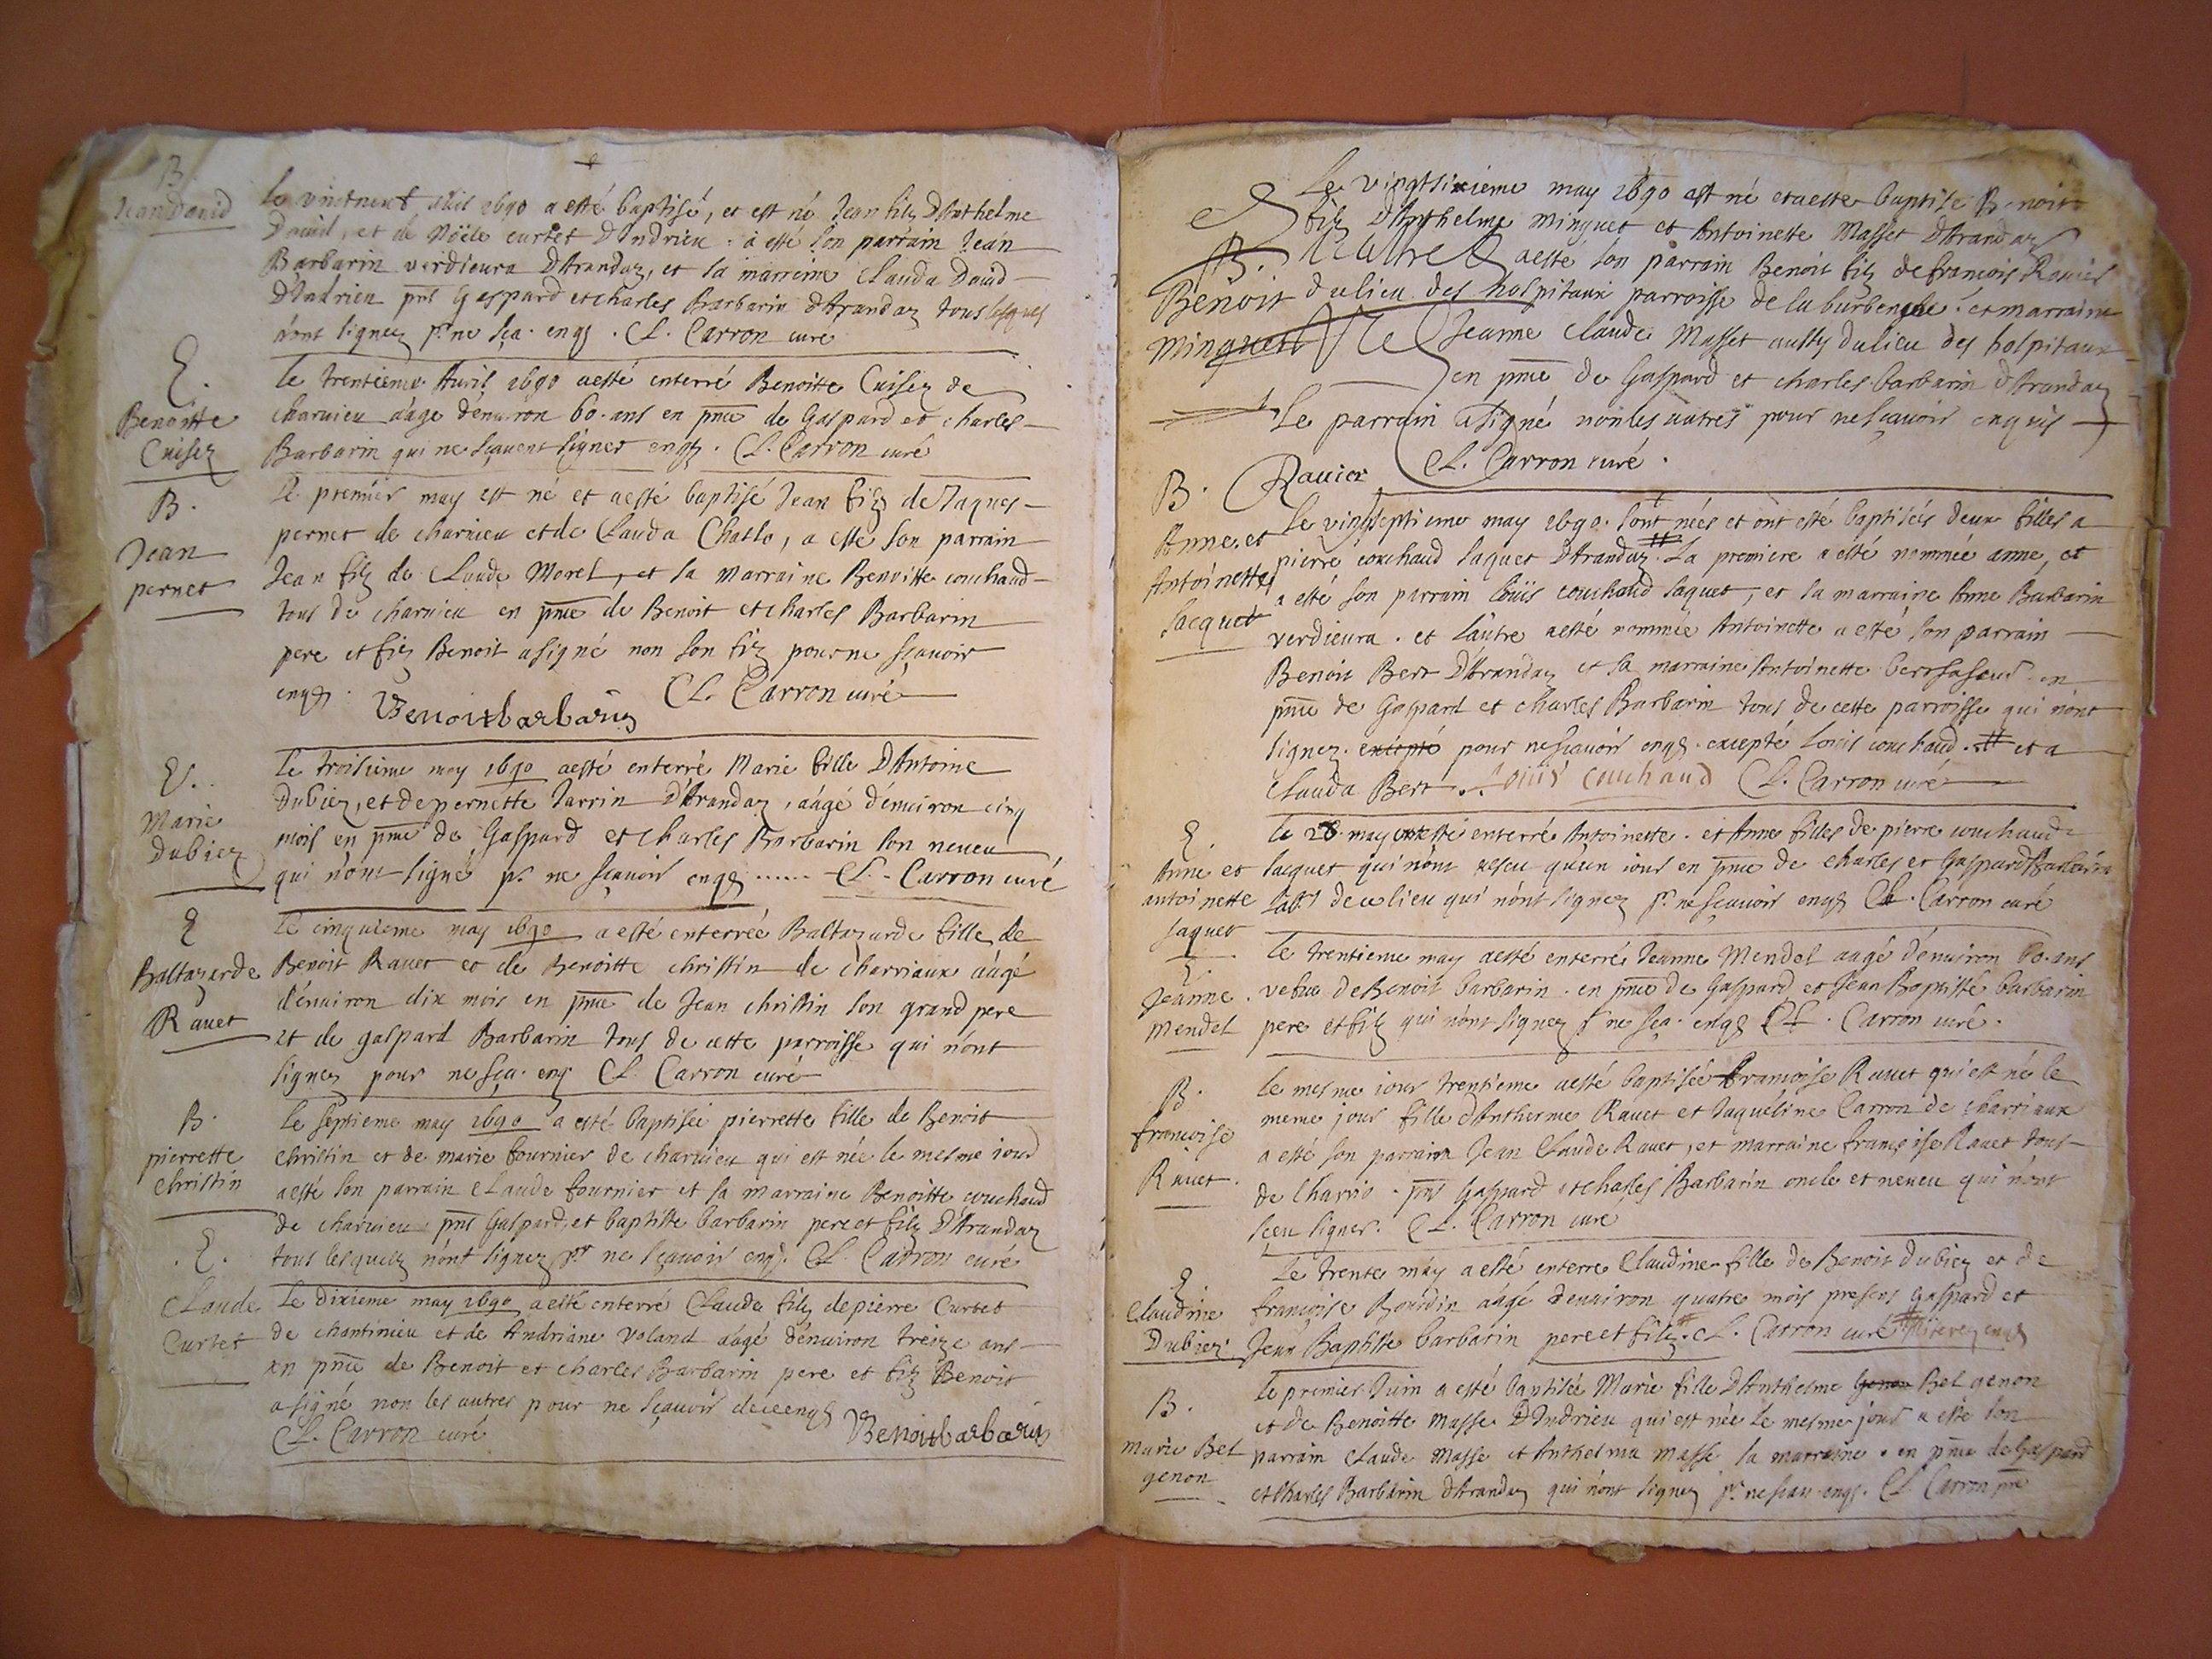 B
Jean David
Le vintneuf avril 1690 a esté baptisé, et est né Jean filz D'Anthelme
David, et de Nöele curtet D'Indrieu . à esté son parrain Jean
Barbarin verdieura D'Arandaz, et sa marreine Clauda David
D'Indrieu pnts Gaspard et charles Barbarin D'Arandaz tous lesques
n'ont signez pr ne sça. enqs . Cl. Carron curé
E.
Benoitte
Cuisez
le trentieme Auril 1690 a esté enterré Benoitte Cuisez de
charuieu aage d'enuiron 60. ans en pnce de Gaspard et charles
Barbarin qui ne sçauent signer enqs . Cl. Carron curé
B.
Jean
pernet
Le premier may est né et a esté baptisé Jean filz de Jaques
pernet de charuieu et de Clauda Chatlo, a esté son parrain
Jean filz de Claude Morel, et sa Marraine Benoitte couchaud
tous de charuieu en pnce de Benoit et charles Barbarin
pere et filz Benoit a signé non son filz pour ne sçauoir
enqs . Cl. Carron curé
Benoit barbarin
E.
Marie
Dubiez
Le troisieme may 1690 a esté enterré Marie fille D'Antoine
Dubiez, et de pernette Jarrin D'Arandaz, aâgé d'enuiron cinq
mois en pnce de Gaspard et charles Barbarin son neueu
qui n'ont signé pr ne sçauoir enqs ...... Cl. Carron curé
E
Baltazarde
Rauet
Le cinquieme may 1690 a esté enterréé Baltazarde fille de
Benoit Rauet et de Benoitte christin de charriaux aâgé
d'enuiron dix mois en pnce de Jean christin son grand pere
et de gaspard Barbarin tous de cette parroisse qui n'ont
signez pour ne sça. enq. Cl. Carron curé
B.
pierrette
christin
Le septieme may 1690 a esté baptisée pierrette fille de Benoit
christin et de marie fournier de charuieu qui est née le mesme iour
a esté son parrain Claude fournier et sa marraine Benoitte couchaud
de charuieu pnts Gaspard, et baptiste barbarin pere et filz D'Arandaz
tous lesquelz n'ont signez pr ne sçauoir enqs. Cl. Carron curé
E.
Claude
Curtet
Le dixieme may 1690 a esté enterré Claude filz de pierre Curtet
de chantinieu et de Andriane Voland aâgé d'enuiron treize ans
en pnce de Benoit et charles Barbarin pere et filz Benoit
a signé non les autres pour ne sçauoir de ce enqs
Cl. Carron curé Benoit barbarin
Le vingtsixieme may 1690 est né et a esté baptisé Benoit
filz D'Anthelme Minguet et Antoinette Masset D'Arandaz
B.
Benoit
Minguet
a esté son parrain Benoit filz de francois Rauier
du lieu des hospitaux parroisse de la burbenche et marraine
Jeanne Claude Masset aussy du lieu des hospitaux
en pnce de Gaspard et charles barbarin D'Arandaz
Le parrain a signé non les autres pour ne sçauoir enquis
Rauier Cl. Carron curé .
B.
Anne. et
Antoinette
Jacquet
Le vingtseptieme may 1690. sont nées et ont esté baptisées deux filles a
pierre couchaud Jaquet D'Arandaz # . La premiere a esté nommée anne, et
a esté son parrain loüis couchaud Jaquet, et sa marraine Anne Barbarin
verdieura . et l'autre a esté nommée Antoinette a esté son parrain
Benoit Bert D'Arandaz et sa marraine Antoinette bert sa soeur . en
pnce de Gaspard et charles Barbarin tous de cette parroisse qui n'ont
signez . excepté pour ne sçauoir enqs . excepté Louis couchaud . # et a
Clauda Bert . Louis couchaud Cl. Carron curé
E.
Anne et
antoinette
Jaquet
Le 28 may ont esté enterré Antoinette . et Anne filles de pierre couchaud
Jacquet qui n'ont uescu qu'un iour en pnce de charles et Gaspard Barbarin
de ce lieu qui n'ont signez pr ne sçauoir enqs Cl. Carron curé
E.
Jeanne .
Mendel
Le trentieme may a esté enterré Jeanne Mendel aagé d'enuiron 60. ans
vefue de Benoit barbarin . en pnce de Gaspard et Jean Baptiste barbarin
pere et filz qui n'ont signez pr ne sça. enqs Cl. Carron curé .
B.
francoise
Rauet .
Le mesme iour trentieme a esté baptisée francoise Rauet qui est né le
meme jour fille d'Antherme Rauet et Jaqueline Carron de charriaux
a esté son parrain Jean Claude Rauet, et marraine françoise Rauet tous
de Charrio . pnts Gaspard et charles Barbarin oncle et neueu qui n'ont
sceu signer . Cl. Carron curé
E.
Claudine
Dubiez .
Le trente may a esté enterré Claudine fille de Benoit Dubiez et de
françoise Bourdin aâgé d'enuiron quatre mois presens Gaspard et
Jean Baptiste barbarin pere et filz # . Cl. Carron curé #
B.
Marie Bel
genon
Le premier Juin a esté baptisée Marie fille D'Anthelme Genon Bel genon
et de Benoitte Masse D'Indrieu qui est née le mesme jour a esté son
parrain Claude Masse et Anthelma Masse sa marraine . en pnce de Gaspard
et charles Barbarin d'Arandaz qui n'ont signez pr ne sçau. enqs. Cl. Carron